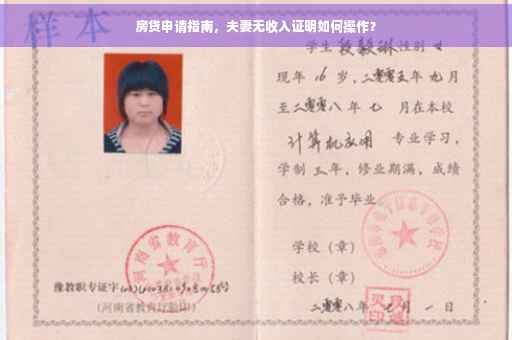 房贷申请指南，夫妻无收入证明如何操作？
样本
学生段毅琳性别女
现年16岁，二零零五年九月
至二零零八年七月在本校
计算机应用 专业学习，
学制三年，修业期满，成绩
合格，准予毕业
学校（章）
校长（章）
二零零八年 月一日
河南省教育厅
豫教职专证字
（河南省教育厅验印）